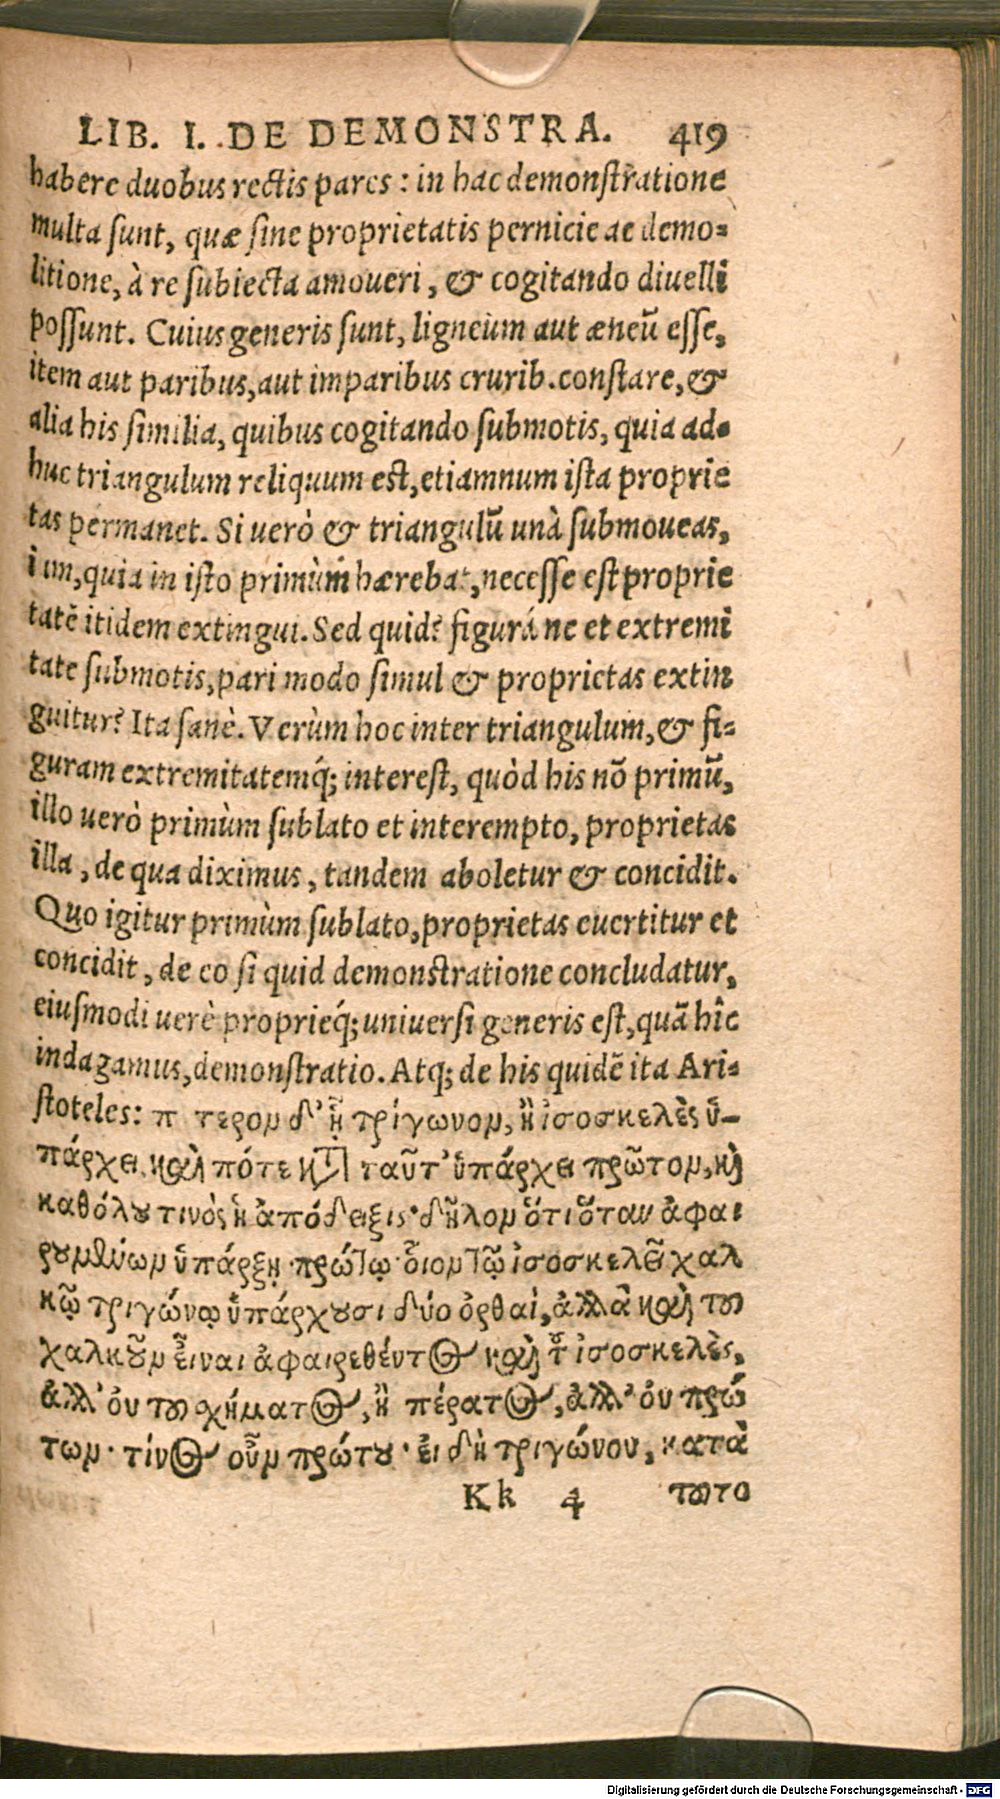 LIB. I. DE DEMONSTRA. 419
habere duobus rectis pares : in hac demonſtratione
multa ſunt, quæ ſine proprietatis pernicie ac demo-
litione, à re ſubiecta amoueri, & cogitando diuelli
poſſunt. Cuius generis ſunt, ligneum aut æneũ eſſe,
item aut paribus, aut imparibus crurib. conſtare, &
alia his ſimilia, quibus cogitando ſubmotis, quia ad-
huc triangulum reliquum eſt, etiamnum iſta proprie
tas permanet. Si uerò & triangulũ unà ſubmoueas,
iam, quia in iſto primùm hærebat, neceſſe eſt proprie
tatẽ itidem extingui. Sed quid? figurá ne et extremi
tate ſubmotis, pari modo ſimul & proprietas extin
guitur? Ita ſanè. Verùm hoc inter triangulum, & fi-
guram extremitatemq́; intereſt, quòd his nõ primũ,
illo uerò primùm ſublato et interempto, proprietas
illa, de qua diximus, tandem aboletur & concidit.
Quo igitur primùm ſublato, proprietas euertitur et
concidit, de eo ſi quid demonſtratione concludatur,
eiuſmodi uerè proprieq́; uniuerſi generis eſt, quã hîc
indagamus, demonſtratio. Atq; de his quidẽ ita Ari-
ſtoteles: π τερομ δ' ᾗ τρίγωνομ, ἢ ἰσοσκελὲς ὑ-
πάρχει καὶ πότε κτ ταῦτ' ὑπάρχει πρῶτομ, καὶ
καθόλου τινὸς ἡ ἀπόδειξις· δῆλομ ὅτι ὅταν ἀφαι
ρουμένωμ ὑπάρξῃ πρώτῳ· οἷομ τῷ ἰσοσκελεῖ χαλ
κῷ τριγώνῳ ὑπάρχουσι δύο ὀρθαὶ, ἀλλὰ καὶ τοῦ
χαλκοῦμ εἶναι ἀφαιρεθέντος καὶ τ ἰσοσκελὲς,
ἀλλ' οὐ τοῦ σχήματος, ἢ πέρατος, ἀλλ' οὐ πρώ
τωμ· τίνος οὖμ πρώτου· εἰ δὴ τριγώνου, κατὰ
Kk 4 τοῦτο
Digitalisierung gefördert durch die Deutsche Forschungsgemeinschaft - DFG